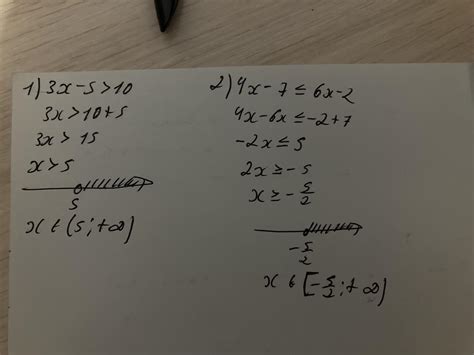 1) 3x-5>10
3x>10+5
3x>15
x>5
5
x ∈ (5;+∞)
2) 4x-7≤6x-2
4x-6x≤-2+7
-2x≤5
2x≥-5
x≥-5/2
-5/2
x ∈ [-5/2;+∞)